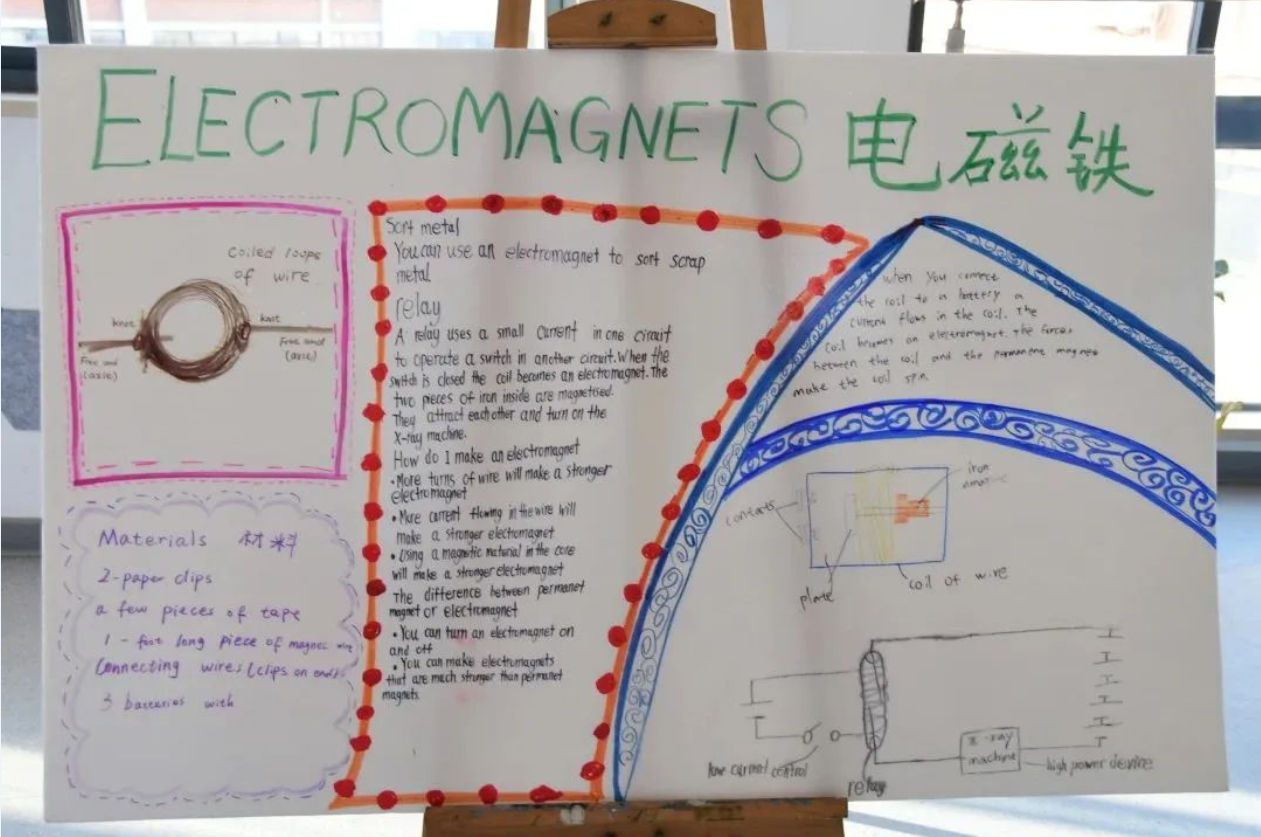 ELECTROMAGNETS 电磁铁
Coiled loops
of wire
knot
knot
Free end
(axle)
Free end
(axle)
Materials 材料
2-paper clips
a few pieces of tape
1 - foot long piece of magnet wire
Connecting wires (clips on ends)
3 batteries with
Sort metal
You can use an electromagnet to sort scrap
metal
relay
A relay uses a small current in one circuit
to operate a switch in another circuit. When the
switch is closed the coil becomes an electromagnet. The
two pieces of iron inside are magnetised.
They attract each other and turn on the
X-ray machine.
How do I make an electromagnet
• More turns of wire will make a stronger
electromagnet
• More current flowing in the wire will
make a stronger electromagnet
• Using a magnetic material in the core
will make a stronger electromagnet
The difference between permanet
magnet or electromagnet
• You can turn an electromagnet on
and off
• You can make electromagnets
that are much stronger than permanet
magnets.
when you connect
the coil to a battery a
current flows in the coil. The
coil becomes an electromagnet. The forces
between the coil and the permanent magnet
make the coil spin.
iron
contacts
plate
coil of wire
low current control
relay
X-ray
machine
high power device